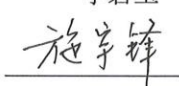 施宇锋